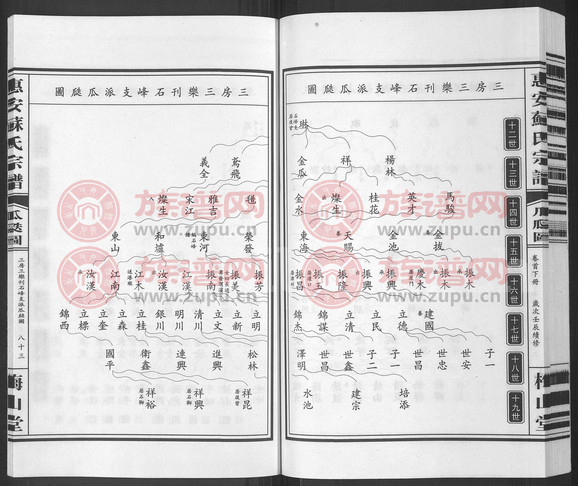 惠安蘇氏宗譜
瓜瓞圖
卷首下冊
歲次壬辰續修
梅山堂
三房三樂刊石峰支派瓜瓞圖
十二世
十三世
十四世
十五世
十六世
十七世
十八世
十九世
楊林 祥 金瓜
馬駿 英才 桂花 燦生 金水
金拔 金池 天賜 東海
振木 慶木 振興 振興 振隆 振玉 振昌
建國 立德 立民 立清 錦謀 錦杰
子一 世安 世忠 世昌 子一 子二 世鑫 世昌 澤明
培添 建宗 水池
族譜網
www.zupu.cn
三房三樂刊石峰支派瓜瓞圖
鳶飛 義全
穗 雅吉 宋江 燦生
榮發 東河 和壚 東山
振芳 振美 振南 江漢 汝漢 江木 江南 汝漢
立明 立新 立文 清川 銀川 立桂 立森 立奎 立標 錦西
松林 進興 連興 衛鑫 國平
祥昆 祥興 祥裕
族譜網
www.zupu.cn
惠安蘇氏宗譜
瓜瓞圖
三房三樂刊石峰支派瓜瓞圖
八十三
梅山堂